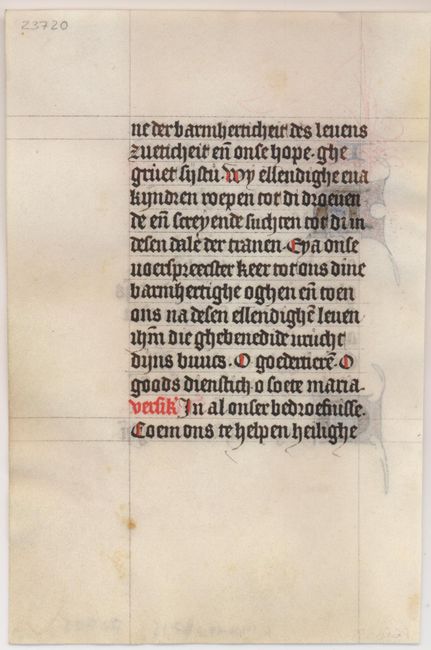 23720
ne der barmherticheit des leuens
zueticheit en̄ onse hope. ghe
gruet sijstu. Wy ellendighe eua
kijndren roepen tot di droeuen
de en̄ screyende suchten tot di in
desen dale der tranen. Eya onse
uoerspreerster keer tot ons dine
barmhertighe oghen en̄ toen
ons na desen ellendighē leuen
ihm̄ die ghebenedide urucht
dijns buucs. O goedertierē. O
goods dienstich o soete maria.
versik' In al onser bedroefnisse.
Coem ons te helpen heilighe